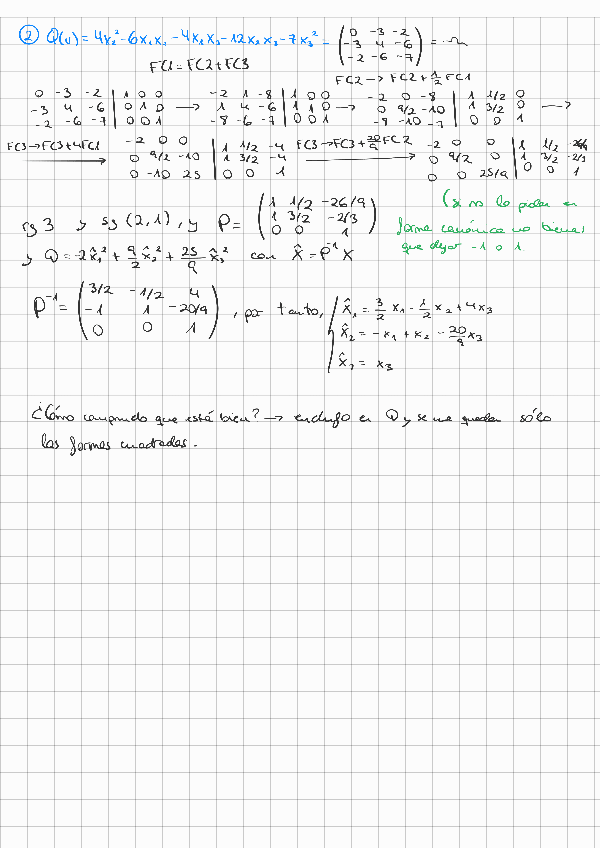 ② Q(v) = 4x₂² - 6x₁x₂ - 4x₁x₃ - 12x₂x₃ - 7x₃² - (0 -3 -2 / -3 4 -6 / -2 -6 -7) =
FC1 = FC2 + FC3
FC2 → FC2 + 1/2 FC1
0 -3 -2 | 1 0 0 -2 1 -8 | 1 0 0 -2 0 -8 | 1 1/2 0
-3 4 -6 | 0 1 0 → 1 4 -6 | 1 1 0 → 0 9/2 -10 | 1 3/2 0 →
-2 -6 -7 | 0 0 1 -8 -6 -7 | 0 0 1 -8 -10 -7 | 0 0 1
FC3 → FC3 + 4FC1 -2 0 0 | 1 1/2 -4 FC3 → FC3 + 20/9 FC2 -2 0 0 | 1 1/2 -26/9
0 9/2 -10 | 1 3/2 -4 0 9/2 0 | 1 3/2 -2/3
0 -10 25 | 0 0 1 0 0 25/9 | 0 0 1
rg 3 y sg (2,1), y P = (1 1/2 -26/9 / 1 3/2 -2/3 / 0 0 1)
(si no lo piden en
forma canónica no tienes
que dejar -1 0 1.
y Q = -2x̂₁² + 9/2 x̂₂² + 25/9 x̂₃² con X̂ = P⁻¹ X
P⁻¹ = (3/2 -1/2 4 / -1 1 -20/9 / 0 0 1), por tanto,
x̂₁ = 3/2 x₁ - 1/2 x₂ + 4x₃
x̂₂ = -x₁ + x₂ - 20/9 x₃
x̂₃ = x₃
¿Cómo compruebo que está bien? → en Q y se me quedan sólo
las formas cuadradas.